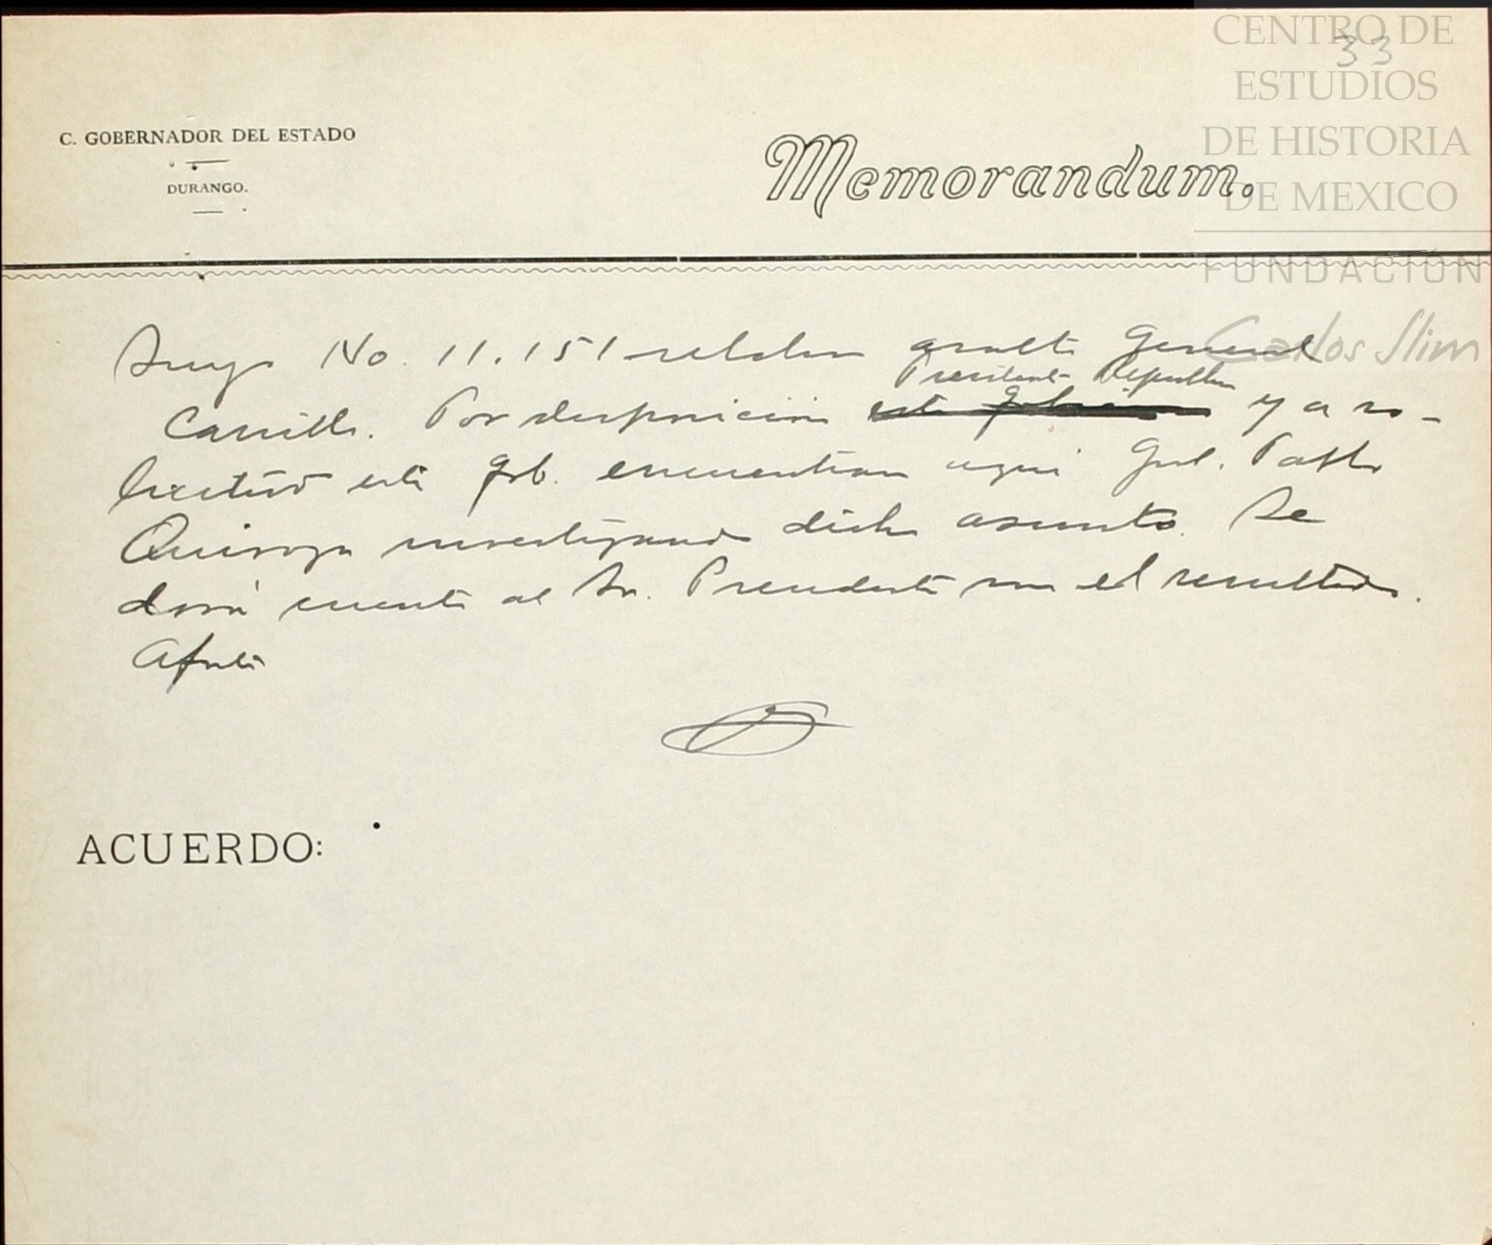 CENTRO DE
33
ESTUDIOS
DE HISTORIA
DE MEXICO
FUNDACIÓN
Carlos Slim
C. GOBERNADOR DEL ESTADO
DURANGO.
Memorandum.
Suyo No. 11.151 relativo General
Presidente República
Carrillo. Por disposición este gobierno y a so-
licitud este gob. encuentran aqui Gral. Pablo
Quiroga investigando dicho asunto. Se
dará cuenta al Sr. Presidente con el resultado.
Afmte
ACUERDO: